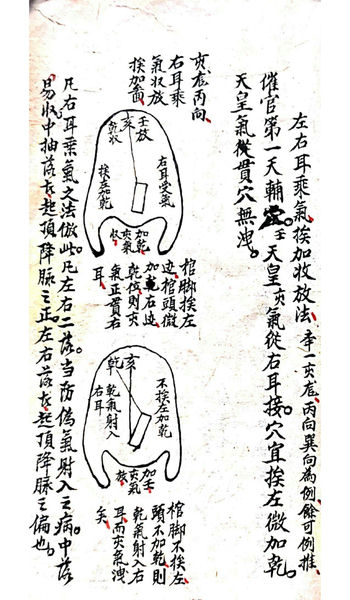 左右耳乘氣挨加收放法 舉一亥龙丙向巽向為例餘可例推
催官第一天輔穴壬天皇亥氣從右耳接穴宜挨左微加乾
天皇氣從貫穴無洩
亥龙丙向
右耳乘
氣收放
挨加圖
壬放
亥
亥收
右耳受氣
挨左加乾
加乾
亥氣
收
棺脚挨左
迹棺頭微
加乾右迹
乾位則亥
氣正貫右
耳
亥
乾
不挨左加乾
乾氣射入
右耳
加壬
亥氣
放
棺脚不挨左
頭不加乾則
乾氣射入右
耳而亥氣洩
矣
凡右耳乘氣之法倣此凡左右二落當防偽氣射入之病中落
易收中抽落起頂降脉之正左右落起頂降脉之偏也